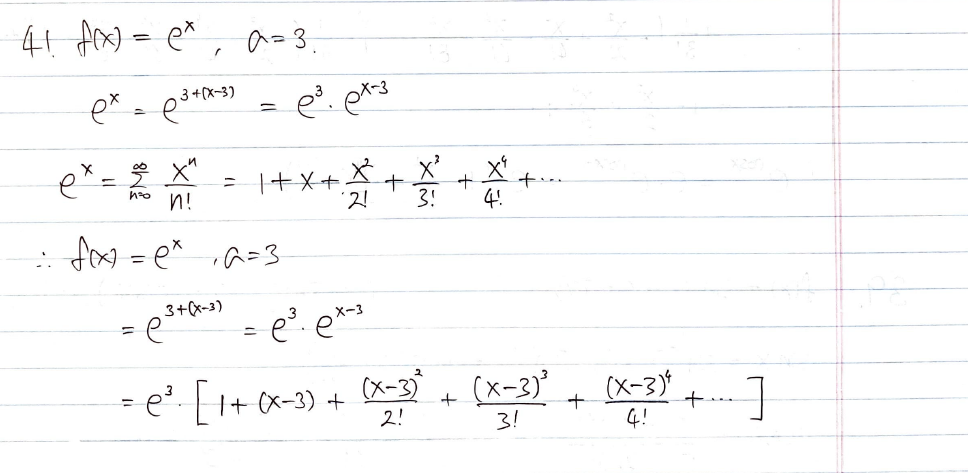 41 f(x) = e^x , a=3.
e^x = e^{3+(x-3)} = e^3 · e^{x-3}
e^x = \sum_{n=0}^{∞} \frac{x^n}{n!} = 1+x+\frac{x^2}{2!} + \frac{x^3}{3!} + \frac{x^4}{4!} + ...
∴ f(x) = e^x , a=3
= e^{3+(x-3)} = e^3 · e^{x-3}
= e^3 · [ 1+ (x-3) + \frac{(x-3)^2}{2!} + \frac{(x-3)^3}{3!} + \frac{(x-3)^4}{4!} + ... ]